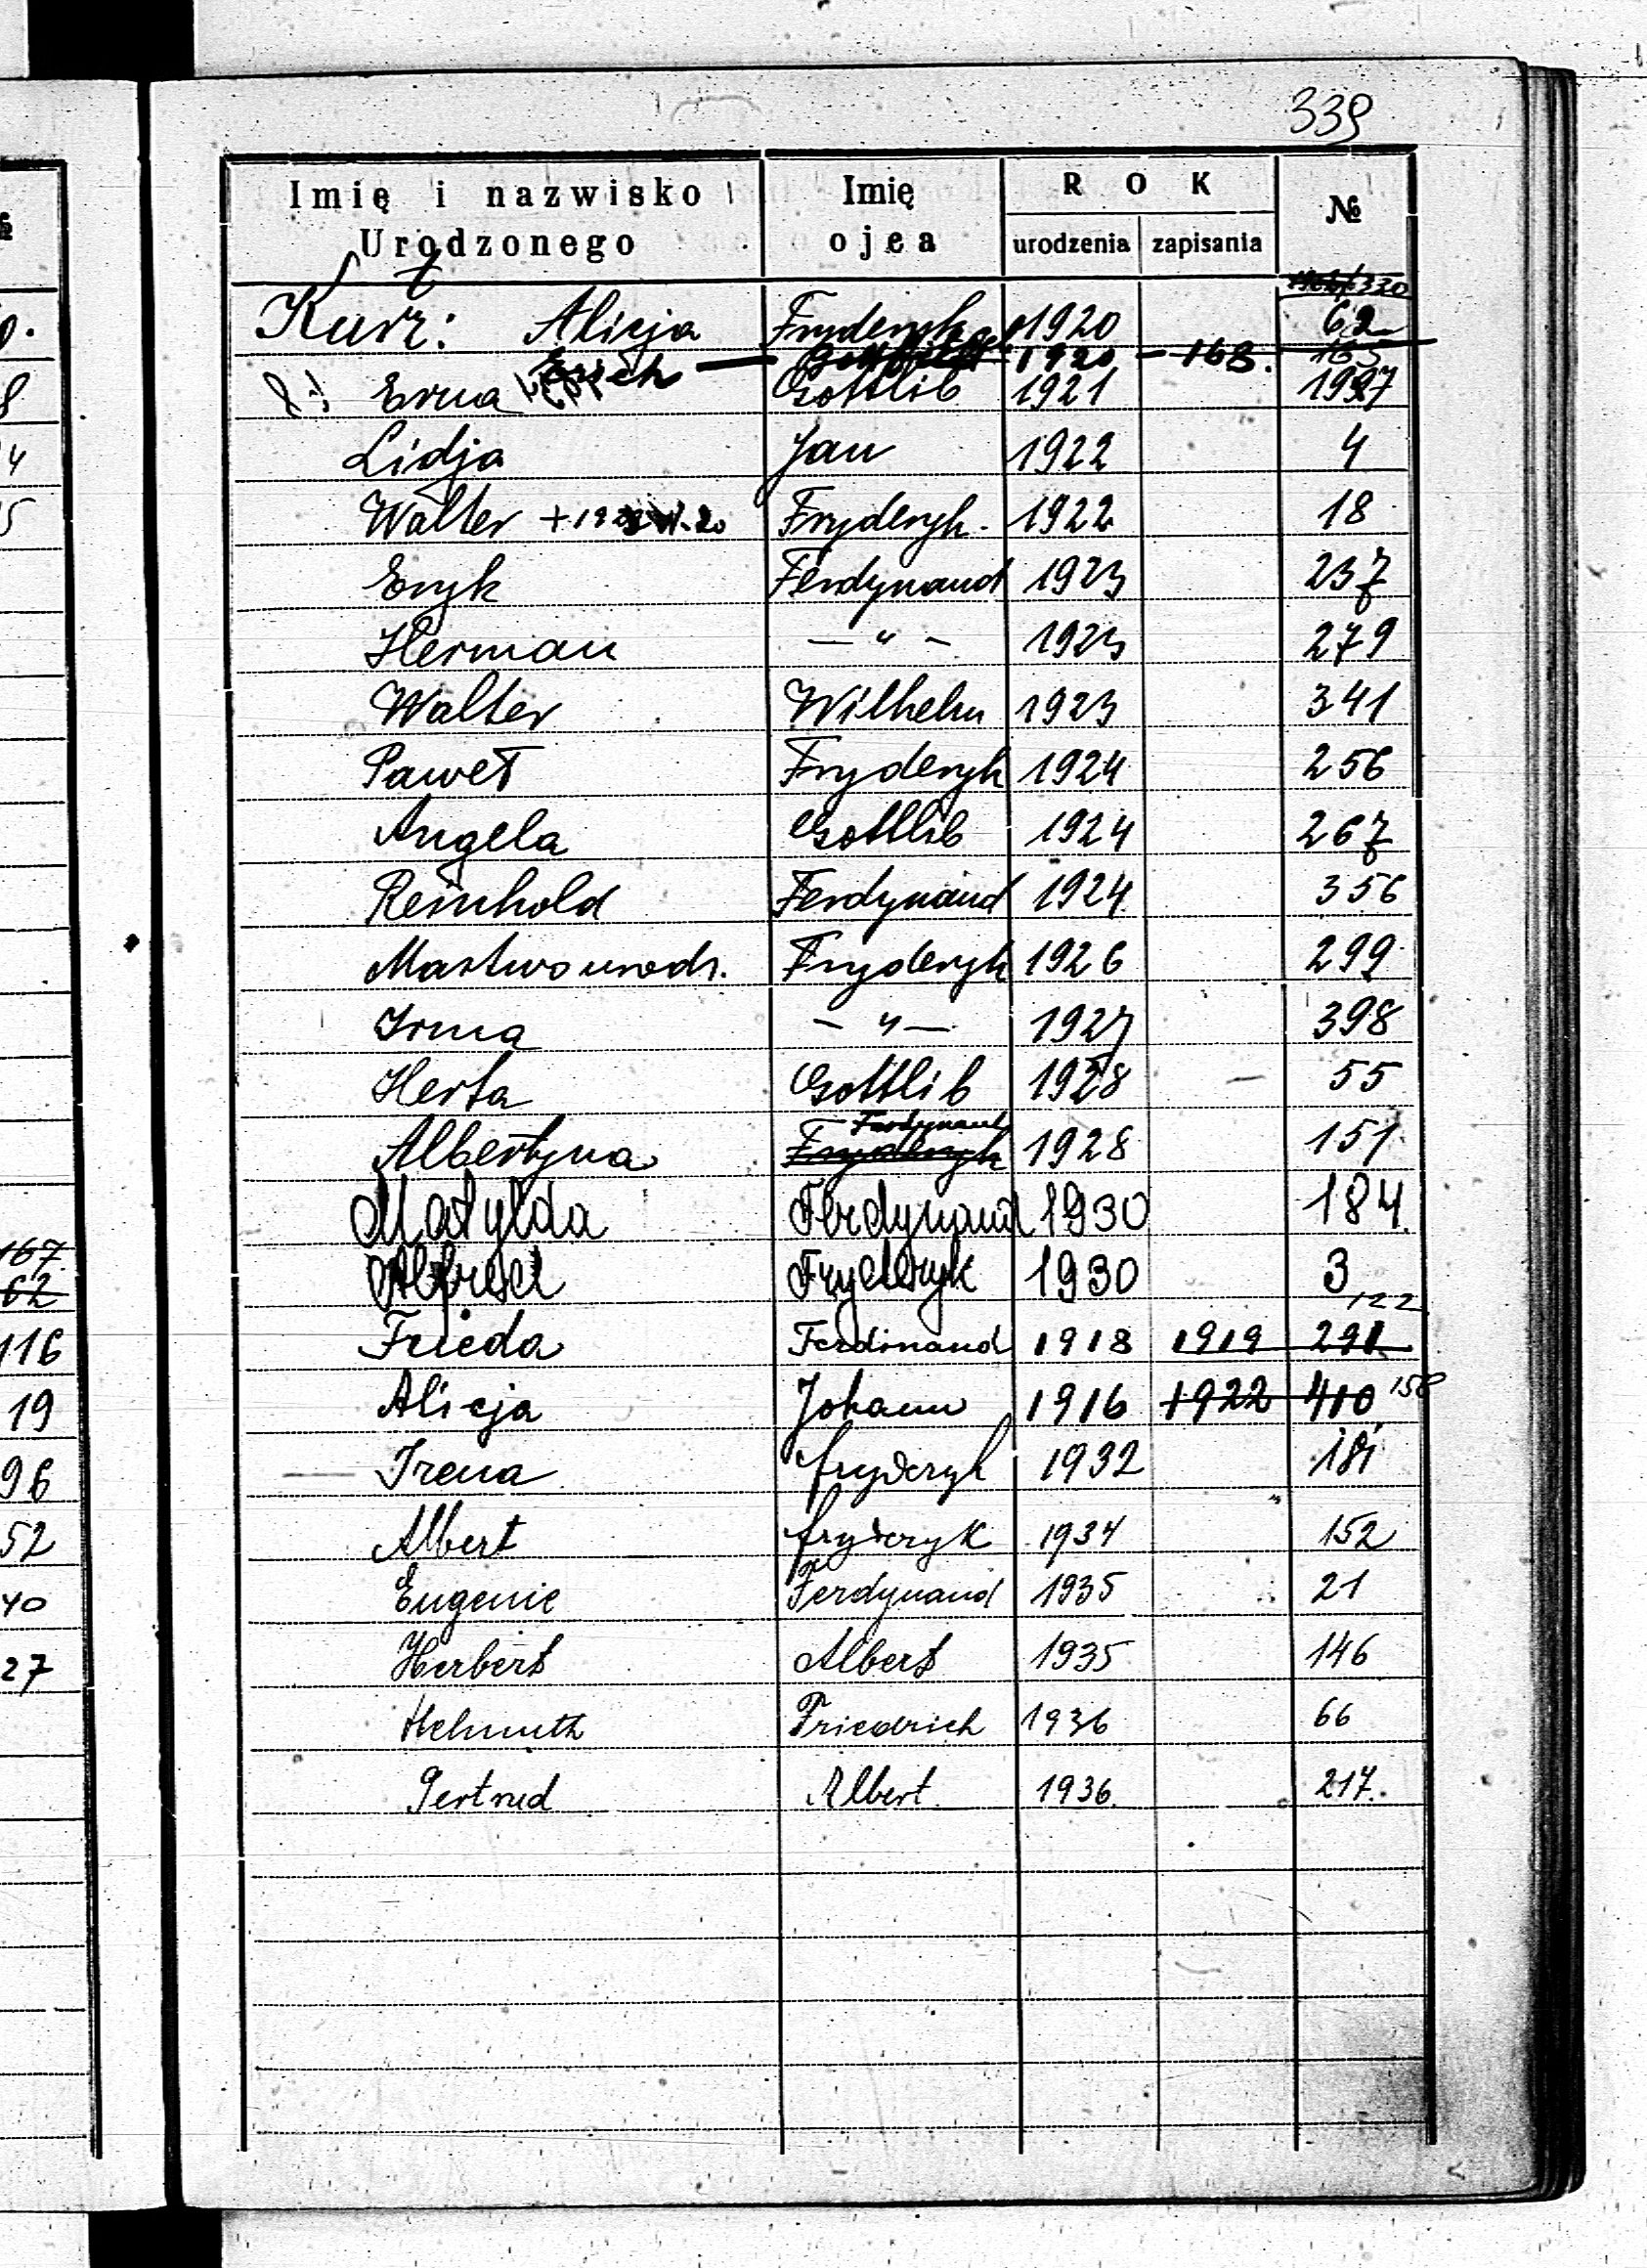 339
Imię i nazwisko Urodzonego Imię ojca R O K №
urodzenia zapisania
Kurz: Alicja Fryderyk 1920 62
Erich 1920 - 163. 165
Erna Gottlib 1921 1927
Lidja Jan 1922 4
Walter + Fryderyk. 1922 18
Eryk Ferdynand 1923 237
Herman — " - 1923 279
Walter Wilhelm 1923 341
Paweł Fryderyk 1924 256
Angela Gottlib 1924 267
Reinhold Ferdynand 1924 356
Martwo urodz. Fryderyk 1926 299
Irma - " — 1927 398
Herta Gottlib 1928 — 55
Ferdynand
Albertyna Fryderyk 1928 151
Matylda Ferdynand 1930 184
Alfred Fryderyk 1930 3
122
Frieda Ferdinand 1918 1919 291
Alicja Johann 1916 1922 410 158
Irena Fryderyk 1932 181
Albert Fryderyk 1934 152
Eugenie Ferdynand 1935 21
Herbert Albert 1935 146
Helmuth Friedrich 1936 66
Gertrud Albert. 1936. 217.
167
62
116
19
96
52
40
27